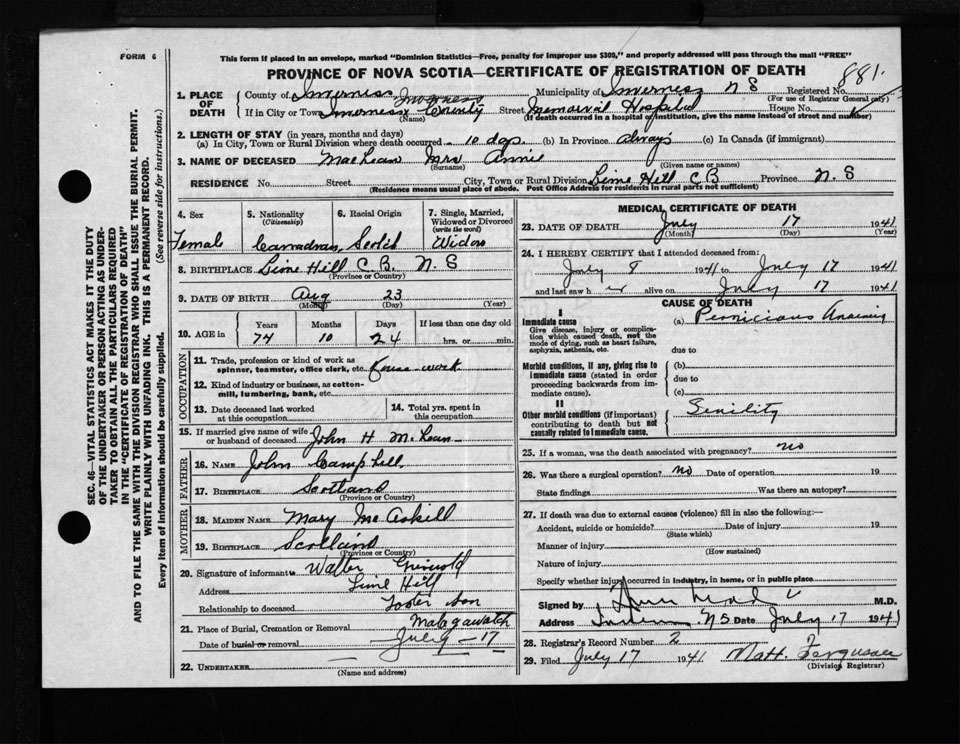 FORM 6
This form if placed in an envelope, marked "Dominion Statistics—Free, penalty for improper use $300," and properly addressed will pass through the mail "FREE"
PROVINCE OF NOVA SCOTIA—CERTIFICATE OF REGISTRATION OF DEATH
881
1. PLACE OF DEATH
County of Inverness Municipality of Inverness N S Registered No.
(For use of Registrar General only)
Inverness
If in City or Town Inverness County Street Memorial Hospital House No.
(Name) (If death occurred in a hospital or institution, give the name instead of street and number)
2. LENGTH OF STAY (in years, months and days)
(a) In City, Town or Rural Division where death occurred 10 days (b) In Province Always (c) In Canada (if immigrant)
3. NAME OF DECEASED MacLean Mrs Annie
(Surname) (Given name or names)
RESIDENCE No. Street City, Town or Rural Division Lime Hill C B Province N. S
(Residence means usual place of abode. Post Office Address for residents in rural parts not sufficient)
4. Sex 5. Nationality (Citizenship) 6. Racial Origin 7. Single, Married, Widowed or Divorced (write the word)
Female Canadian Scotch Widow
8. BIRTHPLACE Lime Hill C. B. N. S
(Province or Country)
9. DATE OF BIRTH Aug 23
(Month) (Day) (Year)
10. AGE in Years Months Days If less than one day old
10 24 hrs. or min.
OCCUPATION
11. Trade, profession or kind of work as spinner, teamster, office clerk, etc. House work
12. Kind of industry or business, as cotton-mill, lumbering, bank, etc.
13. Date deceased last worked at this occupation
14. Total yrs. spent in this occupation
15. If married give name of wife or husband of deceased John H McLean
FATHER
16. NAME John Campbell
17. BIRTHPLACE Scotland
(Province or Country)
MOTHER
18. MAIDEN NAME Mary McAskill
19. BIRTHPLACE Scotland
(Province or Country)
20. Signature of informant Walter Griswold
Address Lime Hill
Relationship to deceased Foster Son
21. Place of Burial, Cremation or Removal Malagawatch
Date of burial or removal July - 17
22. UNDERTAKER
(Name and address)
MEDICAL CERTIFICATE OF DEATH
23. DATE OF DEATH July 17 1941
(Month) (Day) (Year)
24. I HEREBY CERTIFY that I attended deceased from:
July 8 1941 to July 17 1941
and last saw h er alive on July 17 1941
CAUSE OF DEATH
I
Immediate cause (a) Pernicious Anaemia
Give disease, injury or complication which caused death, not the mode of dying, such as heart failure, asphyxia, asthenia, etc.
due to
Morbid conditions, if any, giving rise to immediate cause (stated in order proceeding backwards from immediate cause).
(b)
due to
(c)
II
Other morbid conditions (if important) contributing to death but not causally related to immediate cause. Senility
25. If a woman, was the death associated with pregnancy? no
26. Was there a surgical operation? no Date of operation 19
State findings Was there an autopsy?
27. If death was due to external causes (violence) fill in also the following:—
Accident, suicide or homicide? Date of injury 19
(State which)
Manner of injury
(How sustained)
Nature of injury
Specify whether injury occurred in industry, in home, or in public place
Signed by M.D.
Address NS Date July 17 1941
28. Registrar's Record Number 2
29. Filed July 17 1941 Matt. Ferguson
(Division Registrar)
SEC. 46—VITAL STATISTICS ACT MAKES IT THE DUTY
OF THE UNDERTAKER OR PERSON ACTING AS UNDER-
TAKER TO OBTAIN ALL THE PARTICULARS REQUIRED
IN THE "CERTIFICATE OF REGISTRATION OF DEATH"
AND TO FILE THE SAME WITH THE DIVISION REGISTRAR WHO SHALL ISSUE THE BURIAL PERMIT.
WRITE PLAINLY WITH UNFADING INK. THIS IS A PERMANENT RECORD.
Every item of information should be carefully supplied. (See reverse side for instructions.)